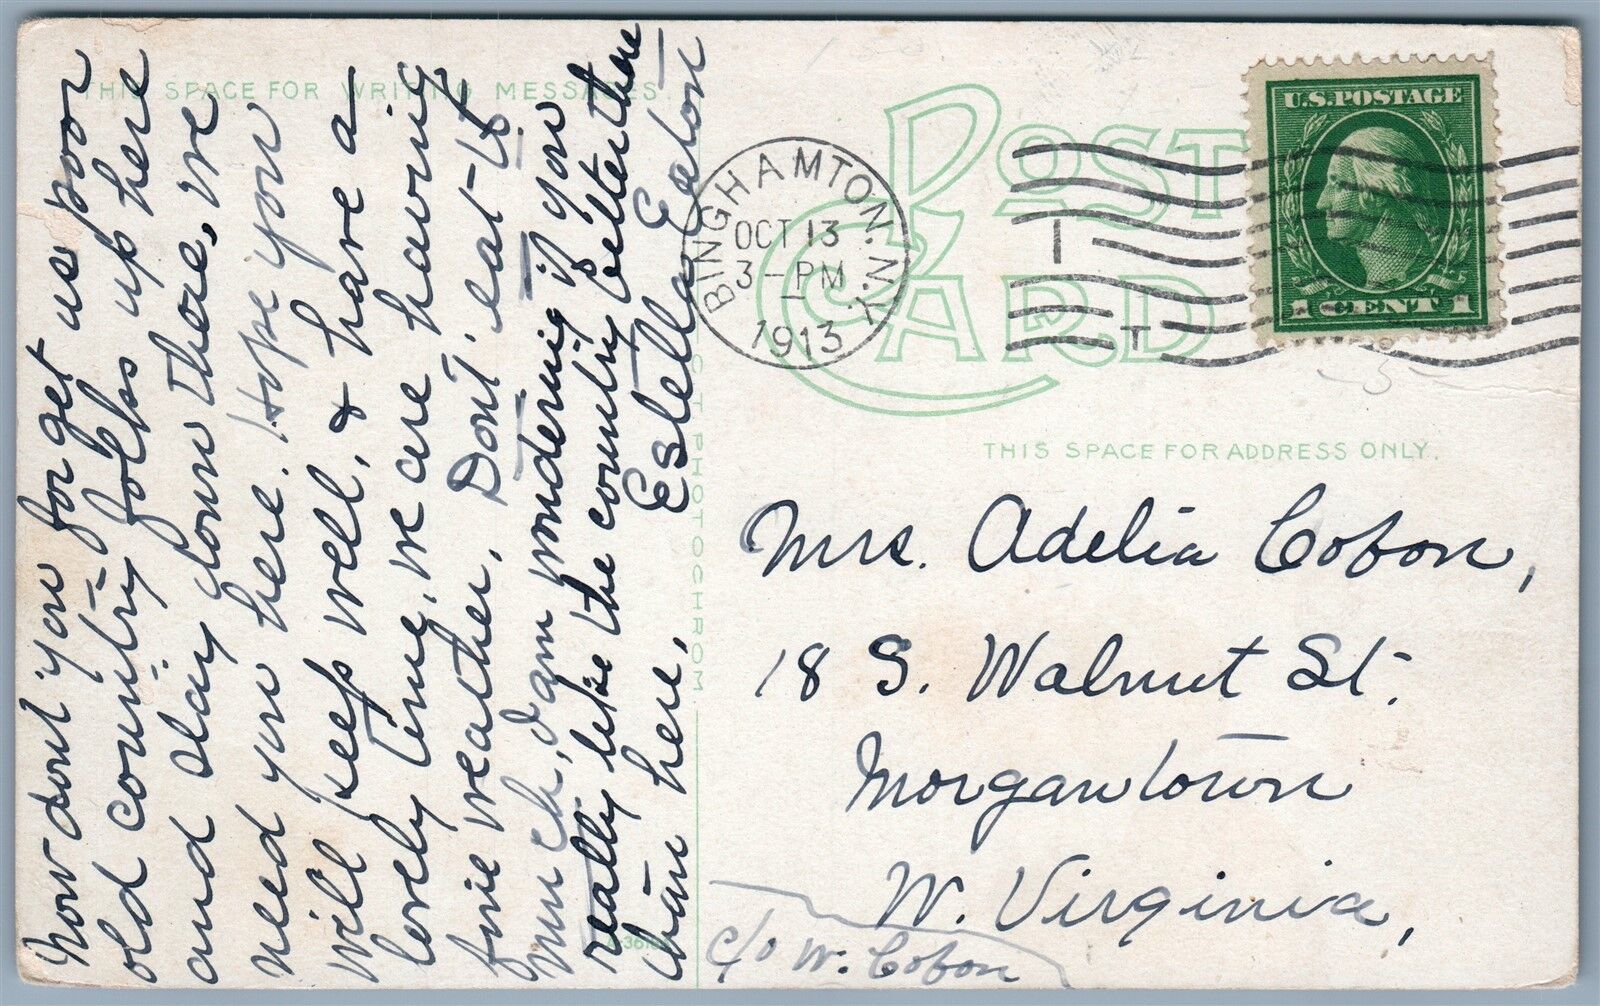 THIS SPACE FOR WRITING MESSAGES.
Now dont you for get us poor
old country folks up here
and stay down there, we
need you here. Hope you
will keep well, & have a
lovely time, we are having
fine weather. Don't eat to
much, I am wondering if you
really like the country better there
than here,
Estella Eaton
POST CARD
BINGHAMTON, N.Y.
OCT 13
3-PM
1913
U.S. POSTAGE
1 CENT 1
THIS SPACE FOR ADDRESS ONLY.
Mrs. Adelia Cobon,
18 S. Walnut St.
Morgantown
W. Virginia,
c/o W. Cobon